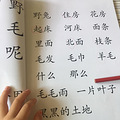 野兔 住房 花房
起床 河床 面条
里面 北面 枝条
毛发 毛巾 羊毛
什么 那么
毛毛雨 一片叶子
黑黑的土地
野
兔
毛
呢